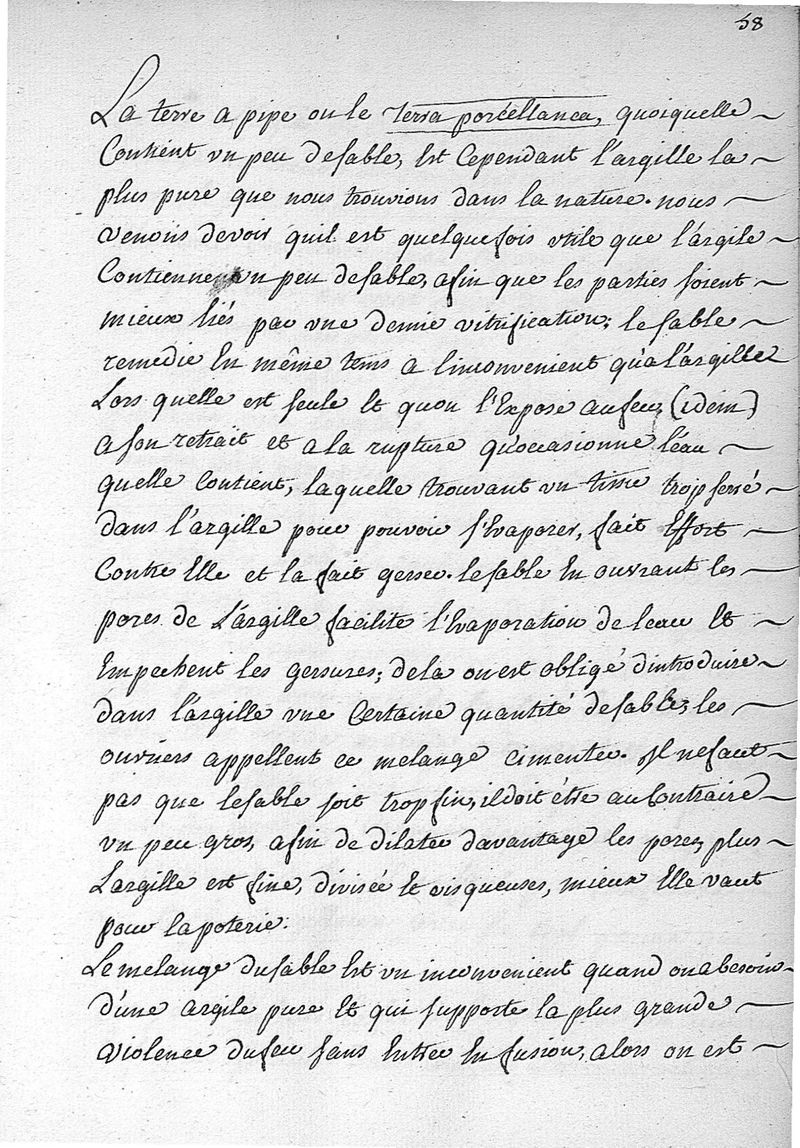 58
La terre a pipe ou le terra porcellanea, quoiquelle
Contient un peu desable, Est Cependant l'argille la
plus pure que nous trouvions dans la nature. nous
venons devoir quil est quelquefois utile que l'argile
Contienne un peu desable, afin que les parties soient
mieux liés par une demie vitrification; le sable
remedie En même tems a l'inconvenient qu'a l'argille
Lors quelle est seule Et quon l'Expose au feu, (idem)
a son retrait et a la rupture qu'occasionne l'eau
quelle Contient, laquelle trouvant un tissu trop serré
dans l'argille pour pouvoir s'Evaporer, fait Effort
Contre Elle et la fait gerser. le sable En ouvrant les
pores de L'argille facilite l'Evaporation de leau Et
Empechent les gersures; dela on est obligé d'introduire
dans l'argille une Certaine quantité desable, les
ouvriers appellent ce melange cimenter. Il ne faut
pas que lesable soit trop fin, il doit être au Contraire
un peu gros, afin de dilater davantage les pores, plus
L'argille est fine, divisée Et visqueuses, mieux Elle vaut
pour la poterie.
Le melange dusable Est un inconvenient quand on a besoin
d'une argile pure Et qui supporte la plus grande
violence dufeu sans Entrer En fusion, alors on est